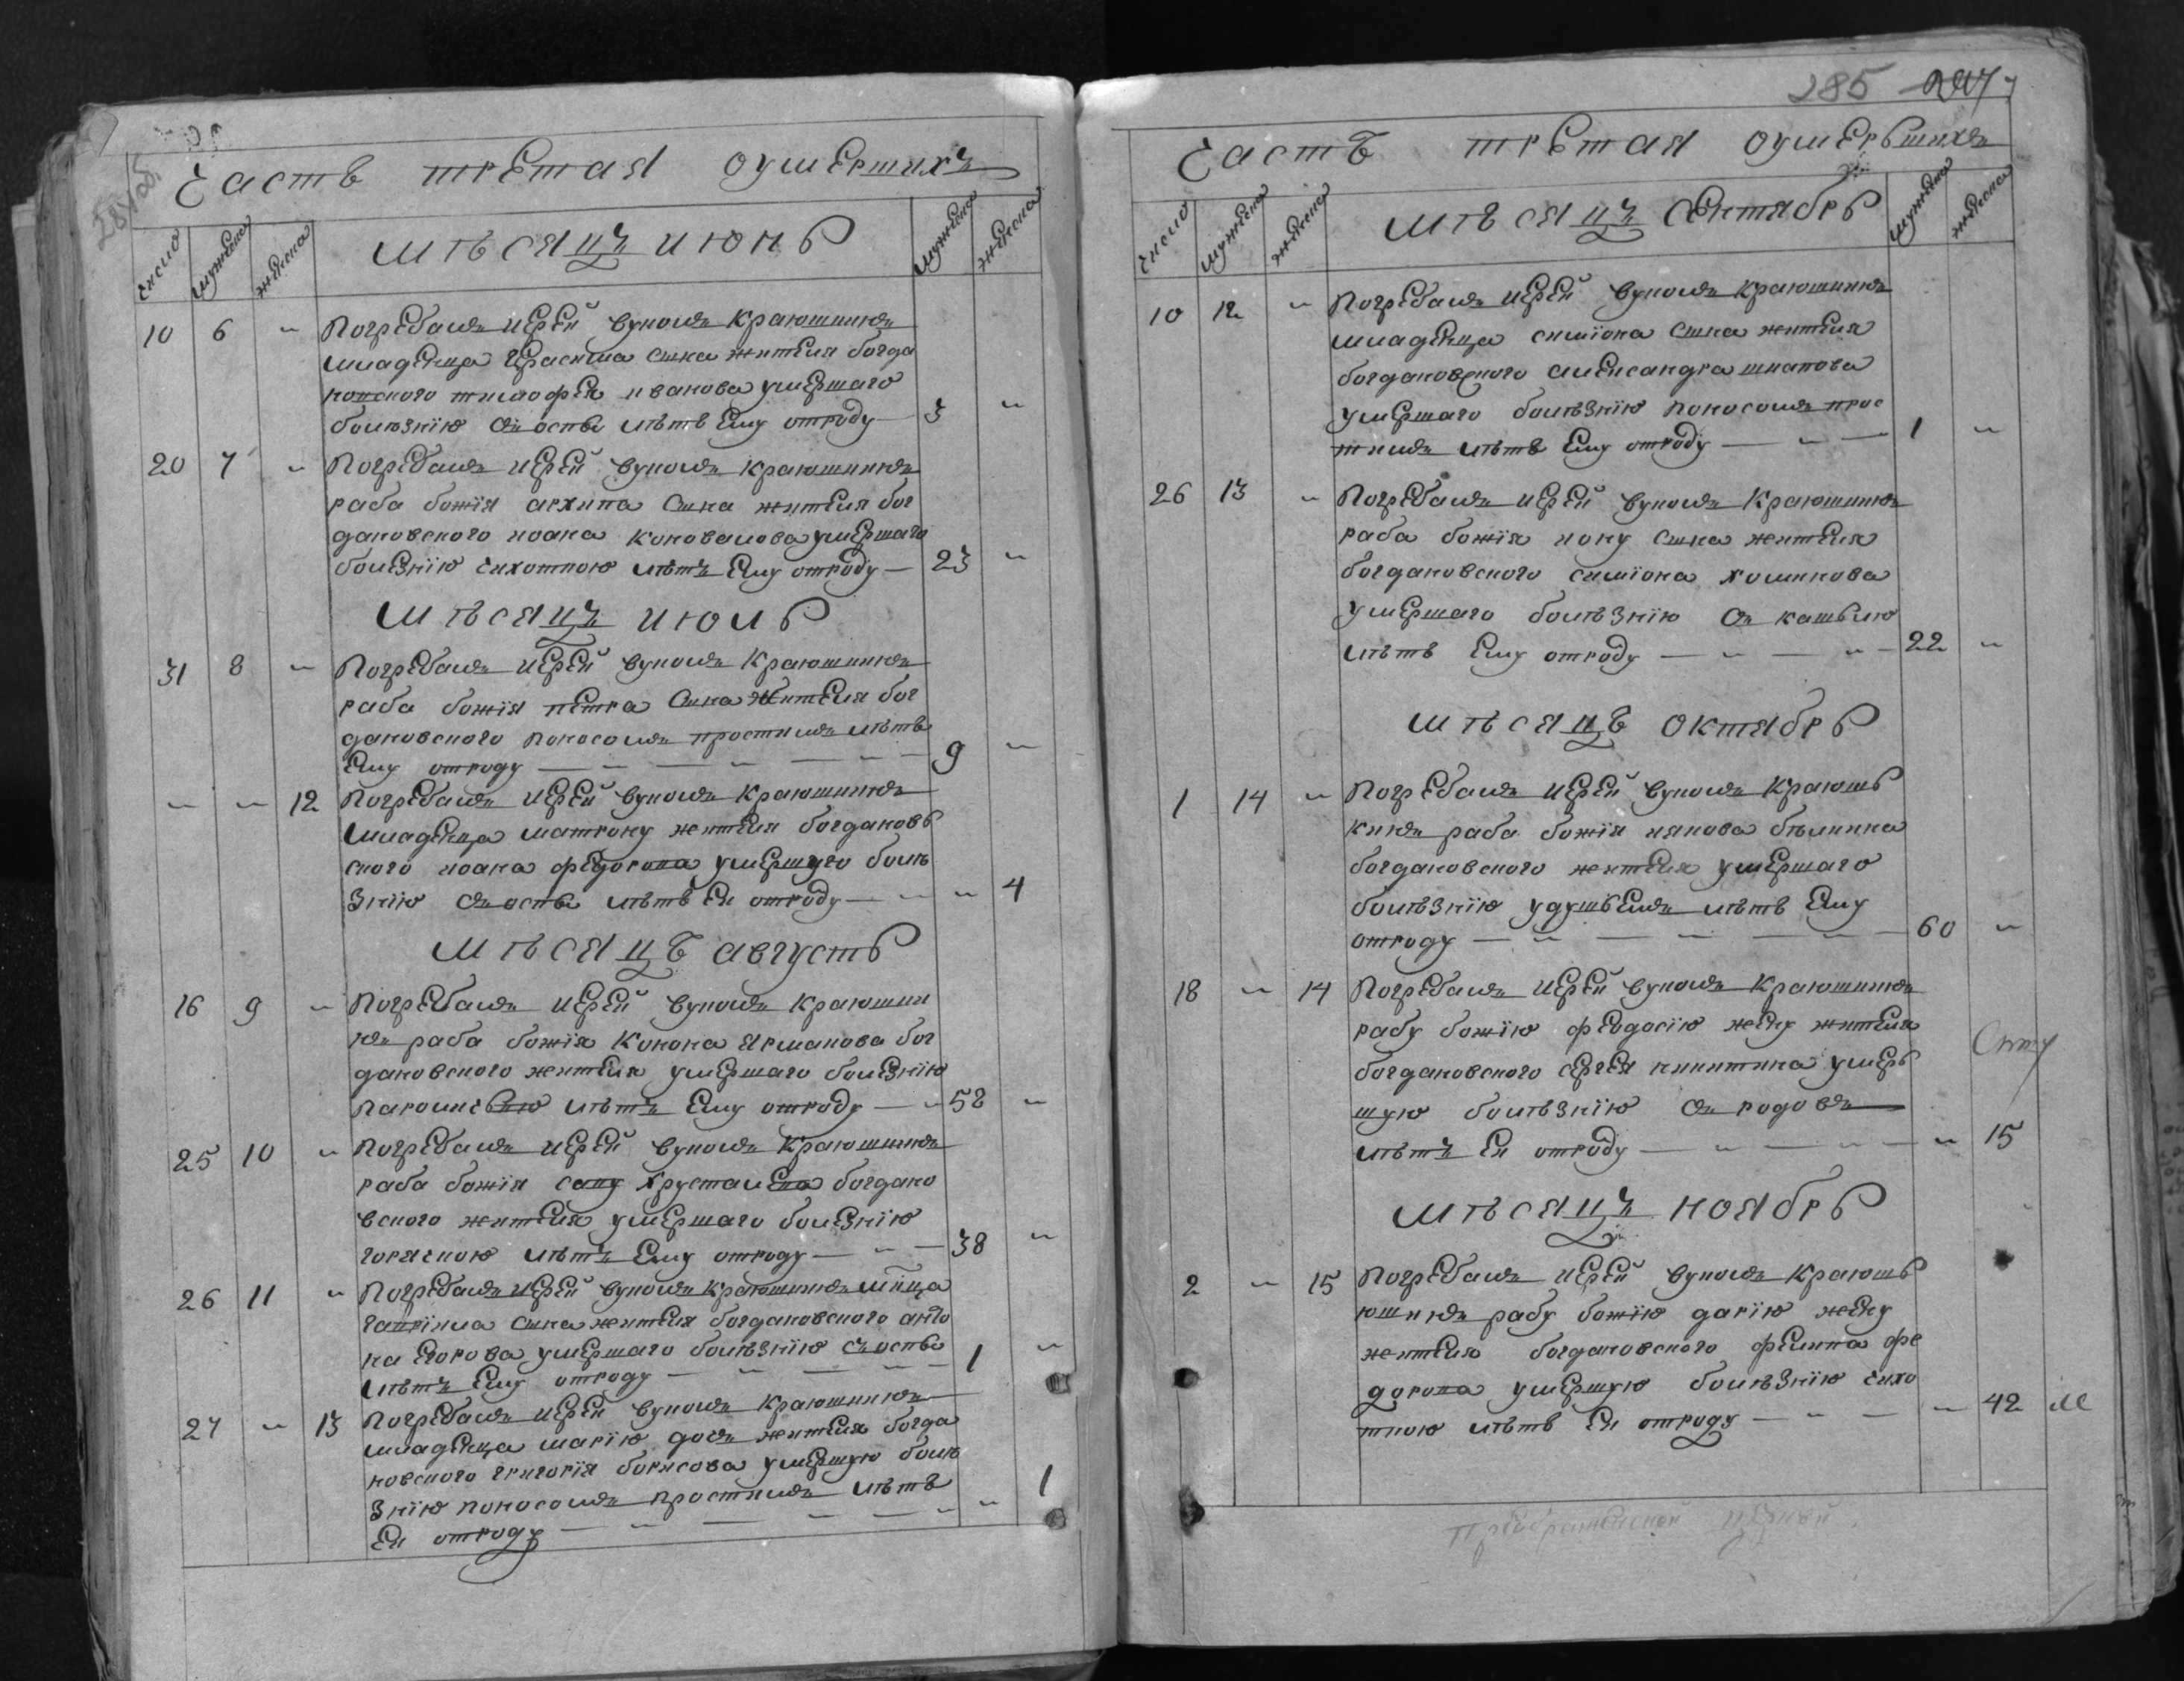 284 об.
Часть третая оумерших
число мужеска женска
мѣсяцъ июнь
мужеска женска
10 6 „ Погребалъ иерей вуколъ краюшкинъ
младенца герасима сына жителя богда
новского тимофея иванова умершаго
болѣзнїю оспы лѣтъ ему отроду — 3 „
20 7 „ Погребалъ иерей вуколъ краюшкинъ
раба божїя архипа сына жителя бог
дановского иоана коновалова умершаго
болезнїю чихотною лѣтъ ему отроду — 23 „
мѣсяцъ июль
31 8 „ Погребалъ иерей вуколъ краюшкинъ
раба божїя петра сына жителя бог
дановского поносомъ простымъ лѣтъ
ему отроду — „ — „ — „ — 9 „
„ „ 12 Погребалъ иерей вуколъ краюшкинъ
младенца матрону жителя богдановь
ского иоана федорова умершуго болѣ
знїю оспы лѣтъ ей отроду — „ „ 4
мѣсяцъ августь
16 9 „ Погребалъ иерей вуколъ краюшки
нъ раба божїя конона ярманова бог
дановского жителя умершаго болезнїю
лѣтъ ему отроду — „ 52 „
25 10 „ Погребалъ иерей вуколъ краюшкинъ
раба божїя саву хрусталева богдано
вского жителя умершаго болезнїю
горячкою лѣтъ ему отроду — „ — 38 „
26 11 „ Погребалъ иерей вуколъ краюшкинъ млнца
гаврїила сына жителя богдановского анто
на егорова умершаго болѣзнїю оспы
лѣтъ ему отроду — „ — „ — 1 „
27 „ 13 Погребалъ иерей вуколъ краюшкинъ
младенца марїю дочь жителя богда
новского григорїя борисова умершую болѣ
знїю поносомъ простымъ лѣтъ
ей отроду — „ — „ — „ „ 1
285 247
Часть третая оумерьшихъ
число мужеска женска
мѣсяцъ сентябрь
мужеска женска
10 12 „ Погребалъ иерей вуколъ краюшкинъ
младенца симїона сына жителя
богдановского александра шкапова
умершаго болѣзнїю поносомъ прос
тымъ лѣтъ ему отроду — „ — 1 „
26 13 „ Погребалъ иерей вуколъ краюшкинъ
раба божїя иону сына жителя
богдановского симїона хомикова
умершаго болѣзнїю кашьлю
лѣтъ ему отроду — „ — „ — 22 „
мѣсяцъ октябрь
1 14 „ Погребалъ иерей вуколъ краюшь
кинъ раба божїя иякова бѣликина
богдановского жителя умершаго
болѣзнїю удушьемъ лѣтъ ему
отроду — „ — „ — „ — 60 „
18 „ 14 Погребалъ иерей вуколъ краюшкинъ
рабу божїю феодосїю жену жителя
богдановского сергея никитина умерь
шую болѣзнїю родовъ
лѣтъ ей отроду — „ — „ — „ 15
мѣсяцъ ноябрь
2 „ 15 Погребалъ иерей вуколъ краюшь
юшкинъ рабу божїю дарїю жену
жителя богдановского филипа фе
дорова умершую болѣзнїю чихо
тною лѣтъ ей отроду — „ — „ 42